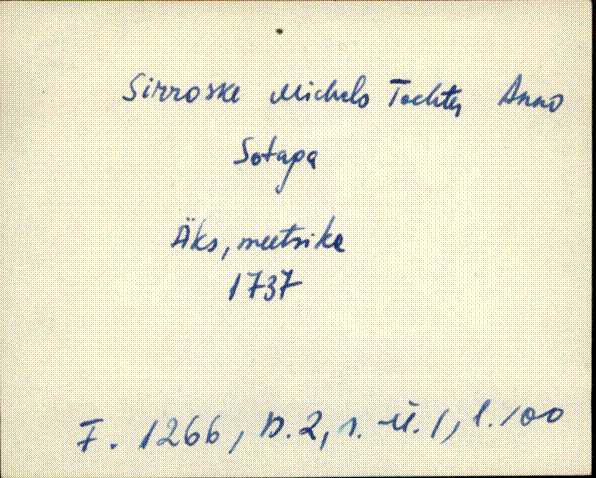 Sirroske Michels Tochter Anno
Sotapa
Äks, meetrika
1737
F. 1266, n. 2, s. ü. 1, l. 100